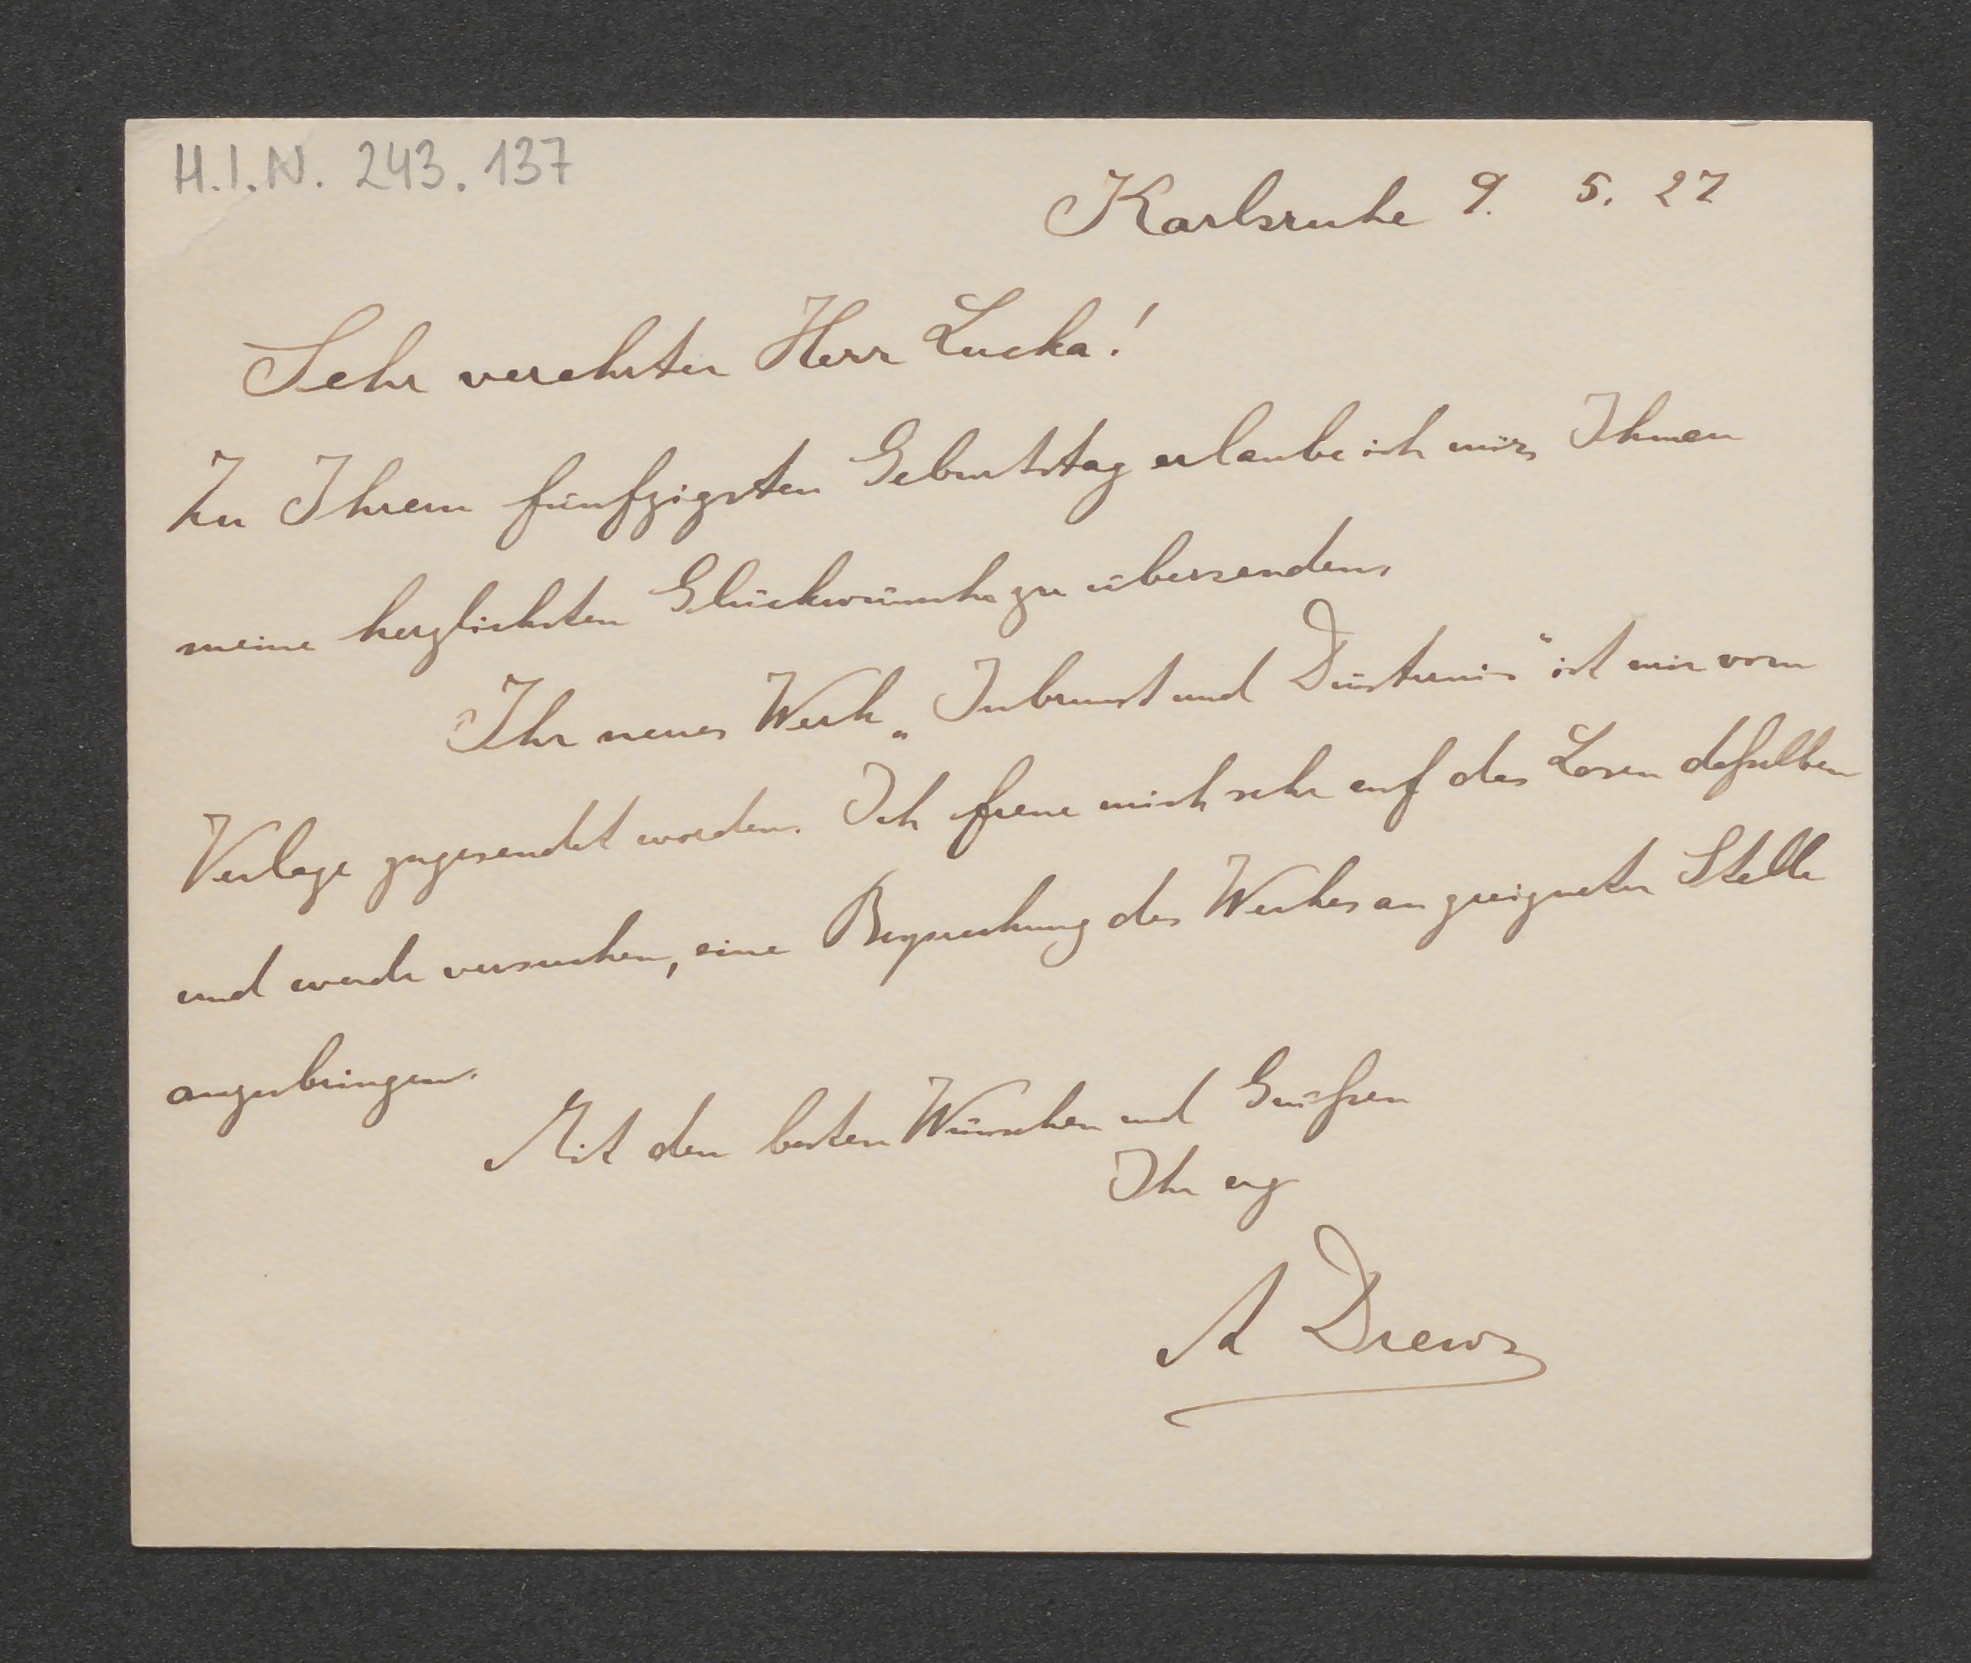 H.I.N. 243.137
Karlsruhe 9. 5. 27
Sehr verehrter Herr Lucka!
Zu Ihrem fünfzigsten Geburtstag erlaube ich mir, Ihnen
meine herzlichsten Glückwünsche zu übersenden.
Ihr neues Werk „Inbrunst und Düsternis“ ist mir vom
Verlage zugesendet worden. Ich freue mich sehr auf das Lesen desselben
und werde versuchen, eine Besprechung des Werkes an geeigneter Stelle
anzubringen.
Mit den besten Wünschen und Grüßen
Ihr erg
A Drews